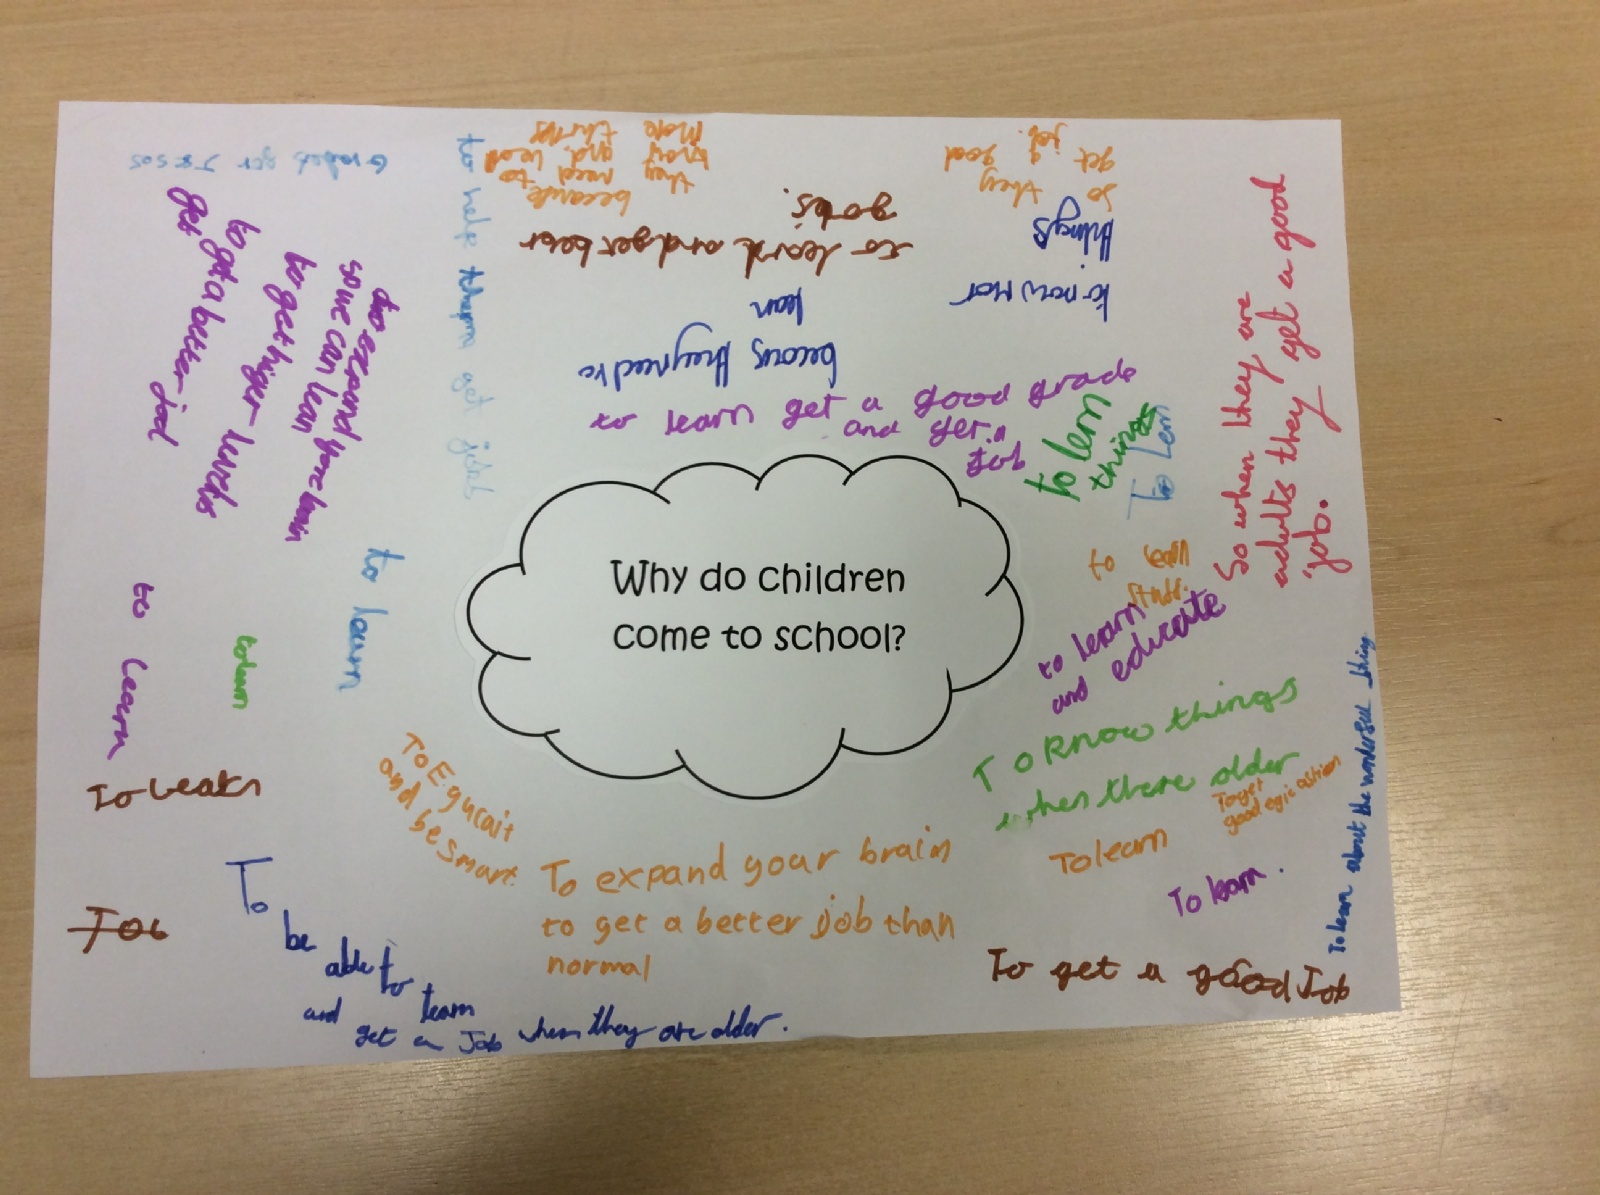 Why do children
come to school?
to learn get a good grade
and get a
Job
to lern
things
To lern
to learn
stuff.
to learn
and educate
So when they are
adults they get a good
job.
To Know things
when there older
To get
good egic ashion
To learn
To learn.
To learn about the wonderful thing
To get a good Job
To expand your brain
to get a better job than
normal
To Egucait
and be smart.
To
be
able to
learn
and
get a Job when they are older.
Job
To learn
to learn
to learn
to learn
get
to get a better job
to get higer levels
so we can lean
to help them get jobs
Grades get
because
they need to
know and lean
more things
to learn and get beter
gobs.
so they
get a good
job.
to now mor
things
becaus they need to
lean